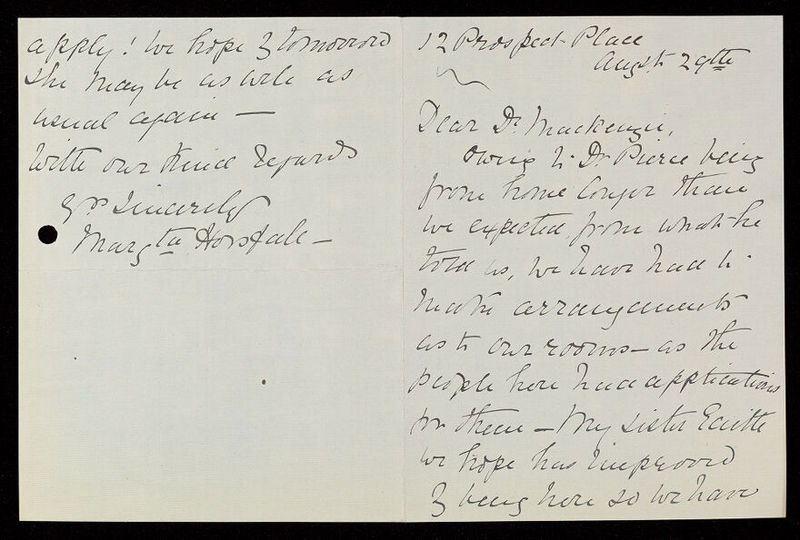 12 Prospect Place
Augst 29th
Dear Dr. Mackenzie,
Owing to Dr Pierce being
from home longer than
we expected from what he
told us, we have had to
make arrangements
as to our rooms – as the
people here had applications
for them – My sister Edith
we hope has improved
by being here so we have
apply! We hope by tomorrow
she may be as well as
usual again —
With our kind regards
Yrs Sincerely
Margta Horsfall –